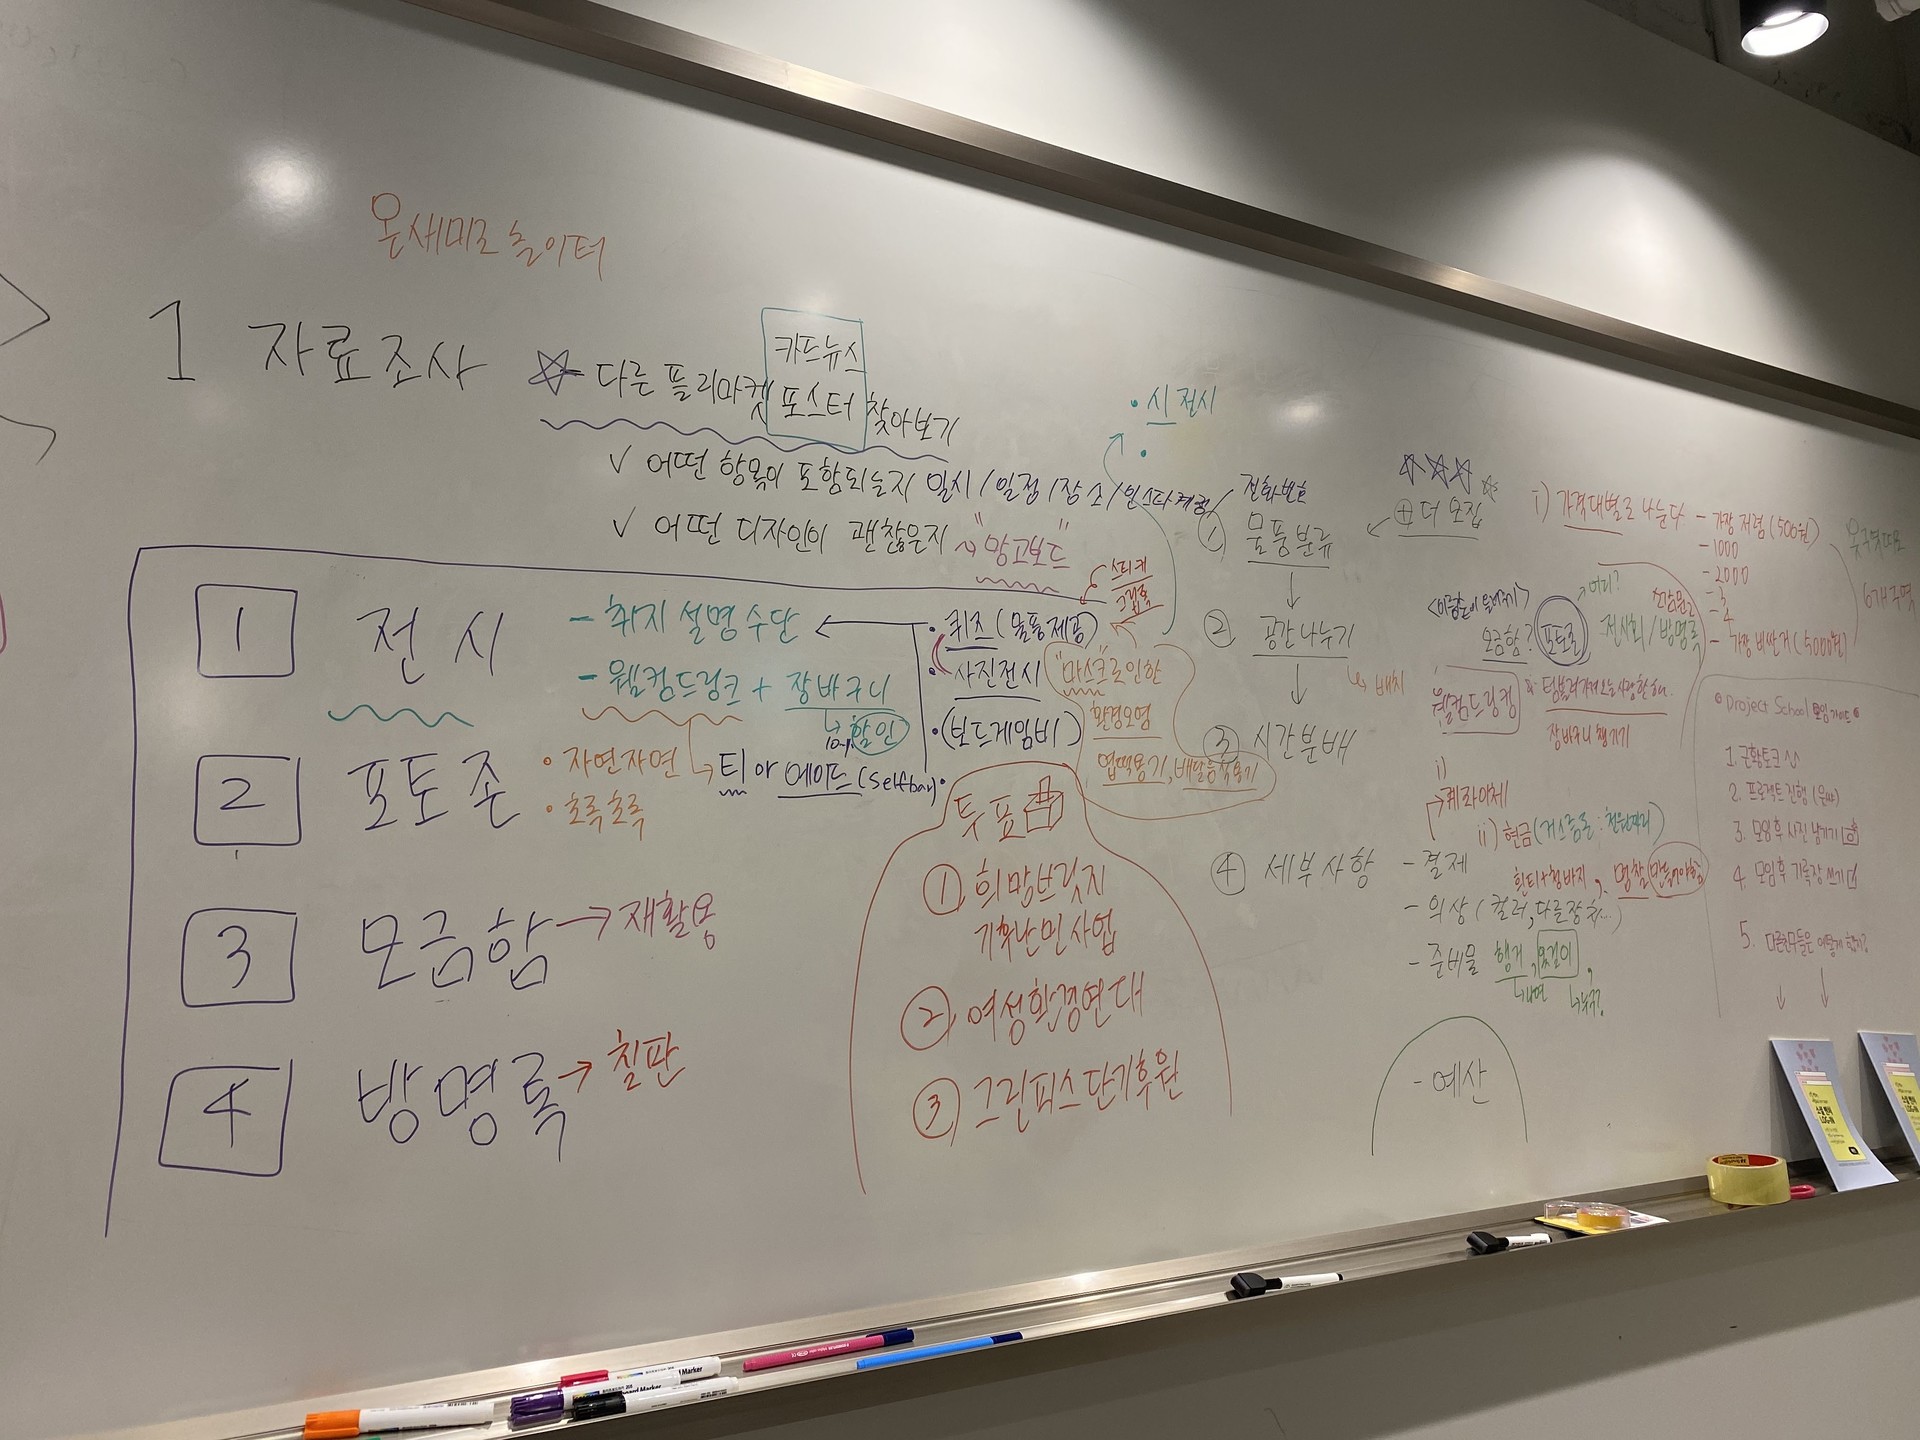 온새미로 놀이터
1 자료조사
☆ 다른 플리마켓 카드뉴스 포스터 찾아보기
✓ 어떤 항목이 포함되는지 일시/일정/장소/인스타계정/전화번호
✓ 어떤 디자인이 괜찮은지 "망고보드"
1 전시
- 취지 설명 수단
- 웰컴드링크 + 장바구니
↳ 할인
티 or 에이드 (selfbar)
2 포토존
• 자연자연
• 초록초록
3 모금함 → 재활용
4 방명록 → 칠판
• 시 전시
• 퀴즈 (물품제공)
스티커
• 사진전시
• (보드게임비)
"마스크"로 인한
환경오염
엽떡용기, 배달음식용기
투표
① 희망브릿지
기후난민사업
② 여성환경연대
③ 그린피스 단기후원
① 물품분류
⊕ 더 모집
② 공간나누기
↳ 배치
③ 시간분배
④ 세부사항
- 결제
- 의상 (컬러,
- 준비물 행거, 옷걸이,
↳ 누구?
- 예산
i) 가격대별로 나눈다 - 가장 저렴 (500원)
- 1000
- 2000
- 3
- 4
- 가장 비싼거 (5000원)
6개 구역
모금함? 포토존 → 어디?
전시회/방명록
웰컴드링킹
장바구니 챙기기
i) 계좌이체
ii) 현금 (거스름돈 : 천원짜리)
흰티+청바지, 명찰
Project School 모임 가이드
1. 근황토크
2. 프로젝트 진행
3. 모임 후 사진 남기기
4. 모임 후 기록장 쓰기
5. 다른친구들은 어떻게 할까?